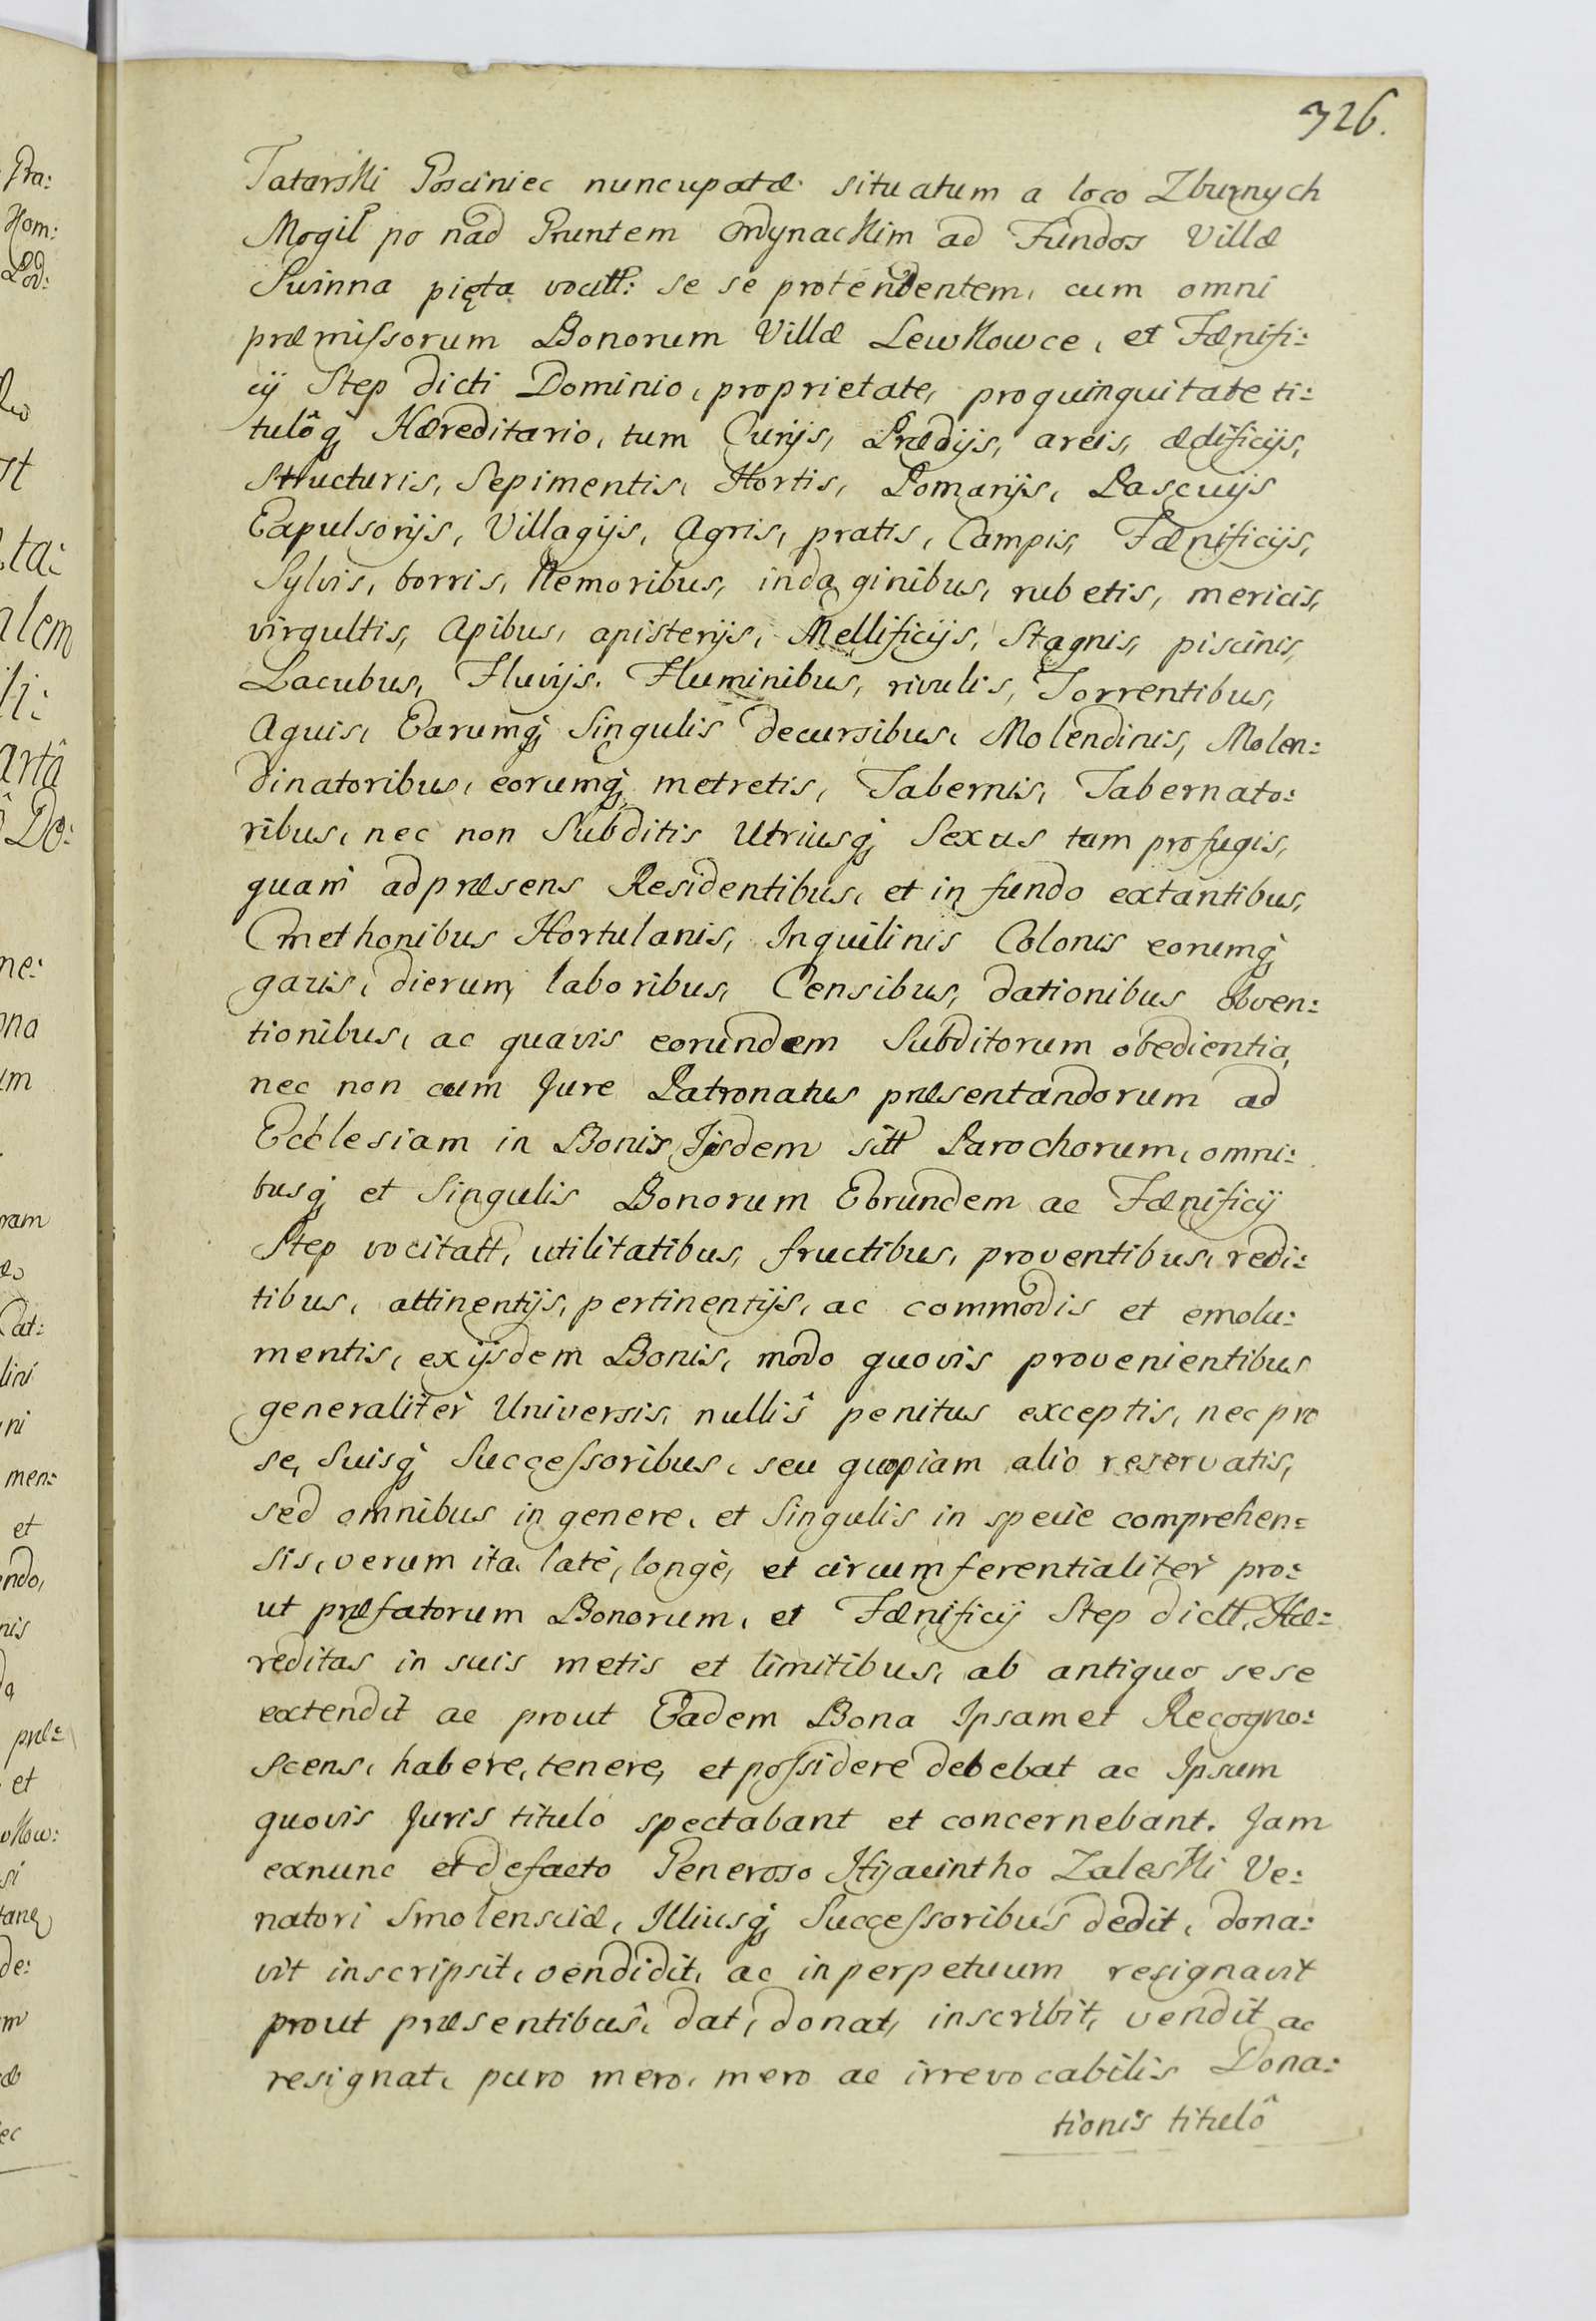 326.
Tatarski Gosciniec nuncupatæ situatum a loco Zburnych
Mogił po nad Gruntem Ordynackim ad Fundos Villæ
Swinna pięta vocitt: se se protendentem, cum omni
præmissorum Bonorum Villæ Lewkowce, et Fænifi:
cij Step dicti Dominio, proprietate, proquinquitate ti:
tulôq̃ Hæreditario, tum Curijs, Prædijs, areis, ædificijs,
Structuris, Sepimentis, Hortis, Pomarijs, Pascuijs
Expulsorijs, Villagijs, Agris, pratis, Campis, Fænificijs,
Sylvis, borris, Nemoribus, indaginibus, rubetis, mericis,
virgultis, Apibus, apisterijs, Mellificijs, Stagnis, piscinis,
Lacubus, Fluvijs, Fluminibus, rivulis, Torrentibus,
Aquis, Earumq̃ Singulis decursibus, Molendinis, Molen:
dinatoribus, eorumq̃ metretis, Tabernis, Tabernato:
ribus, nec non Subditis Utriusq̃ Sexus tam profugis,
quam adpræsens Residentibus, et in fundo extantibus,
Cmethonibus Hortulanis, Inquilinis Colonis eorumq̃
gazis, dierum laboribus, Censibus, dationibus obven:
tionibus, ac quavis eorundem Subditorum obedientia,
nec non cum Jure Patronatus præsentandorum ad
Ecclesiam in Bonis Ijsdem sitt Parochorum, omni:
busq̃ et Singulis Bonorum Eorundem ac Fænificij
Step vocitatt, utilitatibus, fructibus, proventibus, redi:
tibus, attinentijs, pertinentijs, ac commodis et emolu:
mentis, exijsdem Bonis, modo quovis provenientibus
generalitèr Universis, nullis penitus exceptis, nec pro
se, Suisq̃ Successoribus, seu quopiam alio reservatis,
sed omnibus in genere, et Singulis in specie comprehen:
sis, verum ita latè, longè, et circumferentialitèr pro:
ut præfatorum Bonorum, et Fænificij Step dictt, Hæ:
reditas in suis metis et limitibus, ab antiquo sese
extendit ac prout Eadem Bona Ipsamet Recogno:
scens, habere, tenere, et possidere debebat ac Ipsam
quovis Juris titulo spectabant et concernebant. Jam
exnunc et defacto Generoso Hijacintho Zaleski Ve:
natori Smolensciæ, Illiusq̃ Successoribus dedit, dona:
vit inscripsit, vendidit, ac inperpetuum resignavit
prout præsentibus, dat, donat, inscribit, vendit ac
resignat, puro mero, mero ac irrevocabilis Dona:
tionis titulô